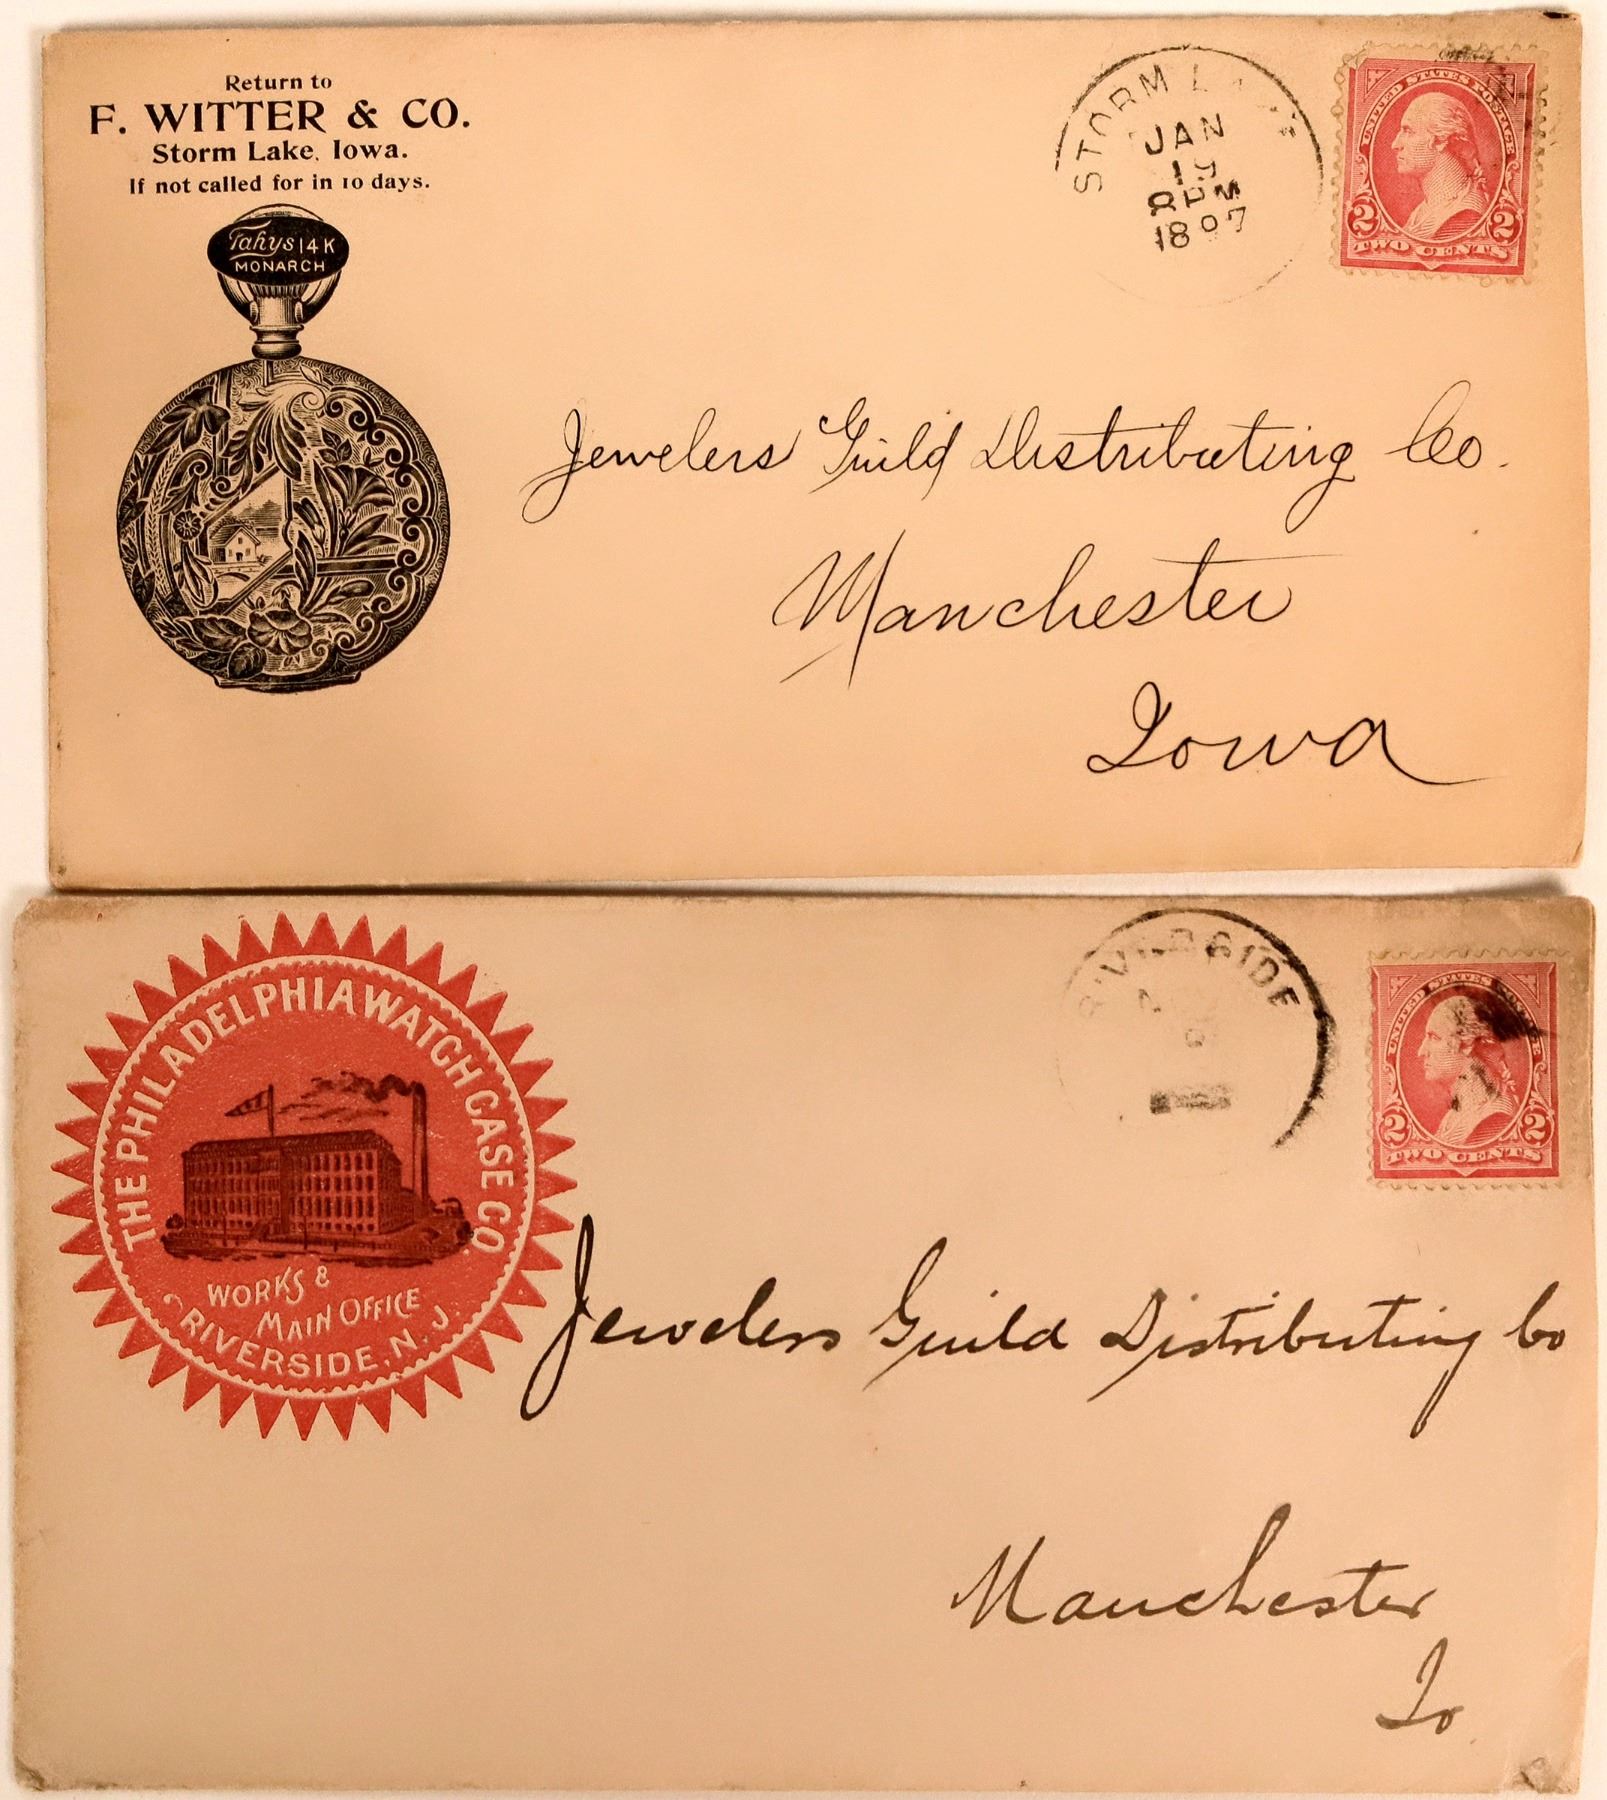 Return to
F. WITTER & CO.
Storm Lake, Iowa.
If not called for in 10 days.
Fahys 14 K
MONARCH
STORM
JAN
19
8 PM
1897
UNITED STATES POSTAGE
2 2
TWO CENTS
Jewelers Guild Distributing Co.
Manchester
Iowa
THE PHILADELPHIA WATCH CASE CO.
WORKS &
MAIN OFFICE
RIVERSIDE, N. J.
RIVERSIDE
UNITED STATES POSTAGE
2 2
TWO CENTS
Jewelers Guild Distributing Co
Manchester
Io